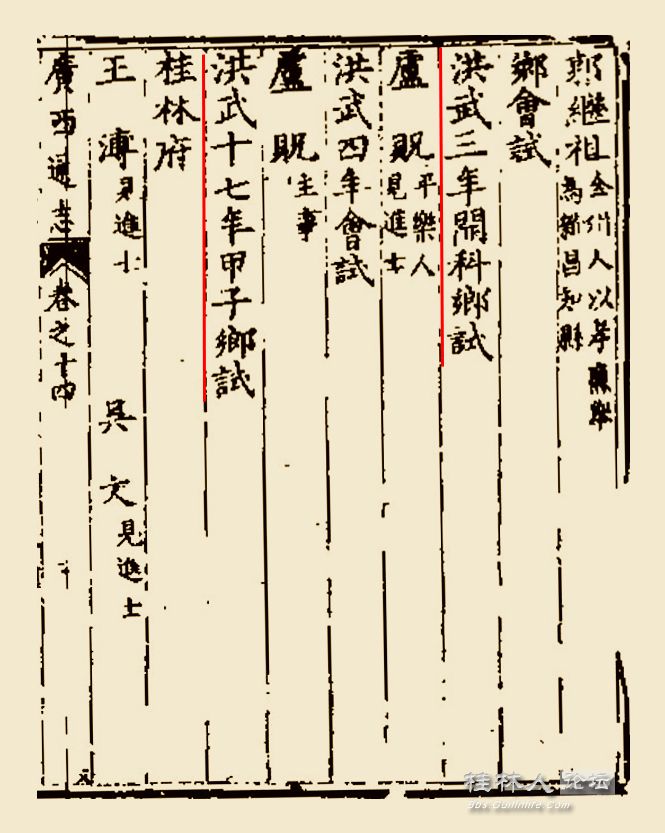 郭繼祖全州人以孝廉舉
為新昌知縣
鄉會試
洪武三年開科鄉試
盧貺平樂人
見進士
洪武四年會試
盧貺主事
洪武十七年甲子鄉試
桂林府
王溥見進士 吳文見進士
廣西通志 卷之十四
桂林人论坛
bbs.Guilinlife.Com